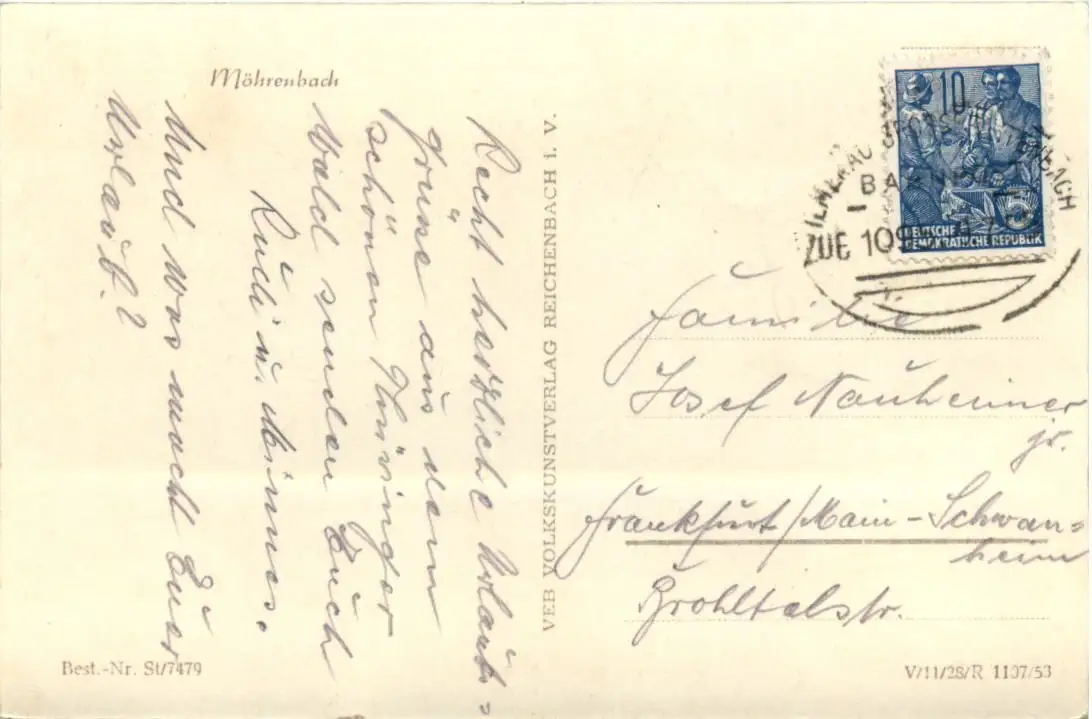 Möhrenbach
Recht herzliche Urlaubs=
grüße aus dem
schönen Thüringer
Wald senden Euch
Rudi u.
Und was macht Euer
Urlaub?
VEB VOLKSKUNSTVERLAG REICHENBACH i. V.
10
DEUTSCHE
DEMOKRATISCHE REPUBLIK
BAHNPOST
ZUG 109
Familie
Josef Nauheimer
jr.
Frankfurt/Main-Schwan=
heim
Brohltalstr.
Best.-Nr. St/7479
V/11/28/R 1107/53